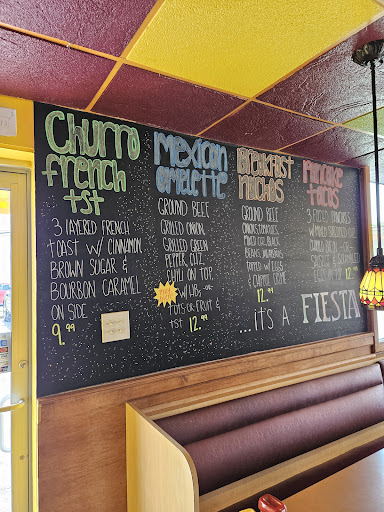 Churro
french
tst
3 layered french
toast w/ cinnamon
brown sugar &
bourbon caramel
on side
9.99
Mexican
omelette
ground beef
grilled onion,
grilled green
pepper, chz
chili on top
w/ hbs or
pots or fruit &
tst 12.99
Breakfast
nachos
ground beef
onions, tomatoes,
mixed chz, black
beans, jalapeños
topped w/ eggs
& chipotle creme
12.99
Pancake
tacos
3 pieces pancakes
12.99
...it's a FIESTA